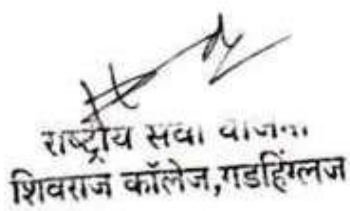 राष्ट्रीय सेवा योजना
शिवराज कॉलेज,गडहिंग्लज